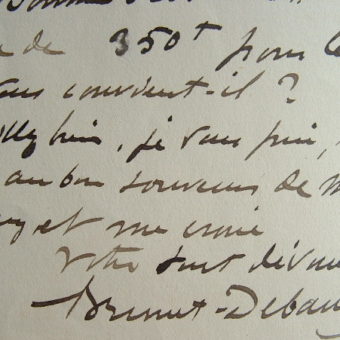 de 350f pour le
vous convient-il ?
bien, je vous prie,
au bon souvenir de M
et me croire
Votre tout dévoué
Brunet-Debain